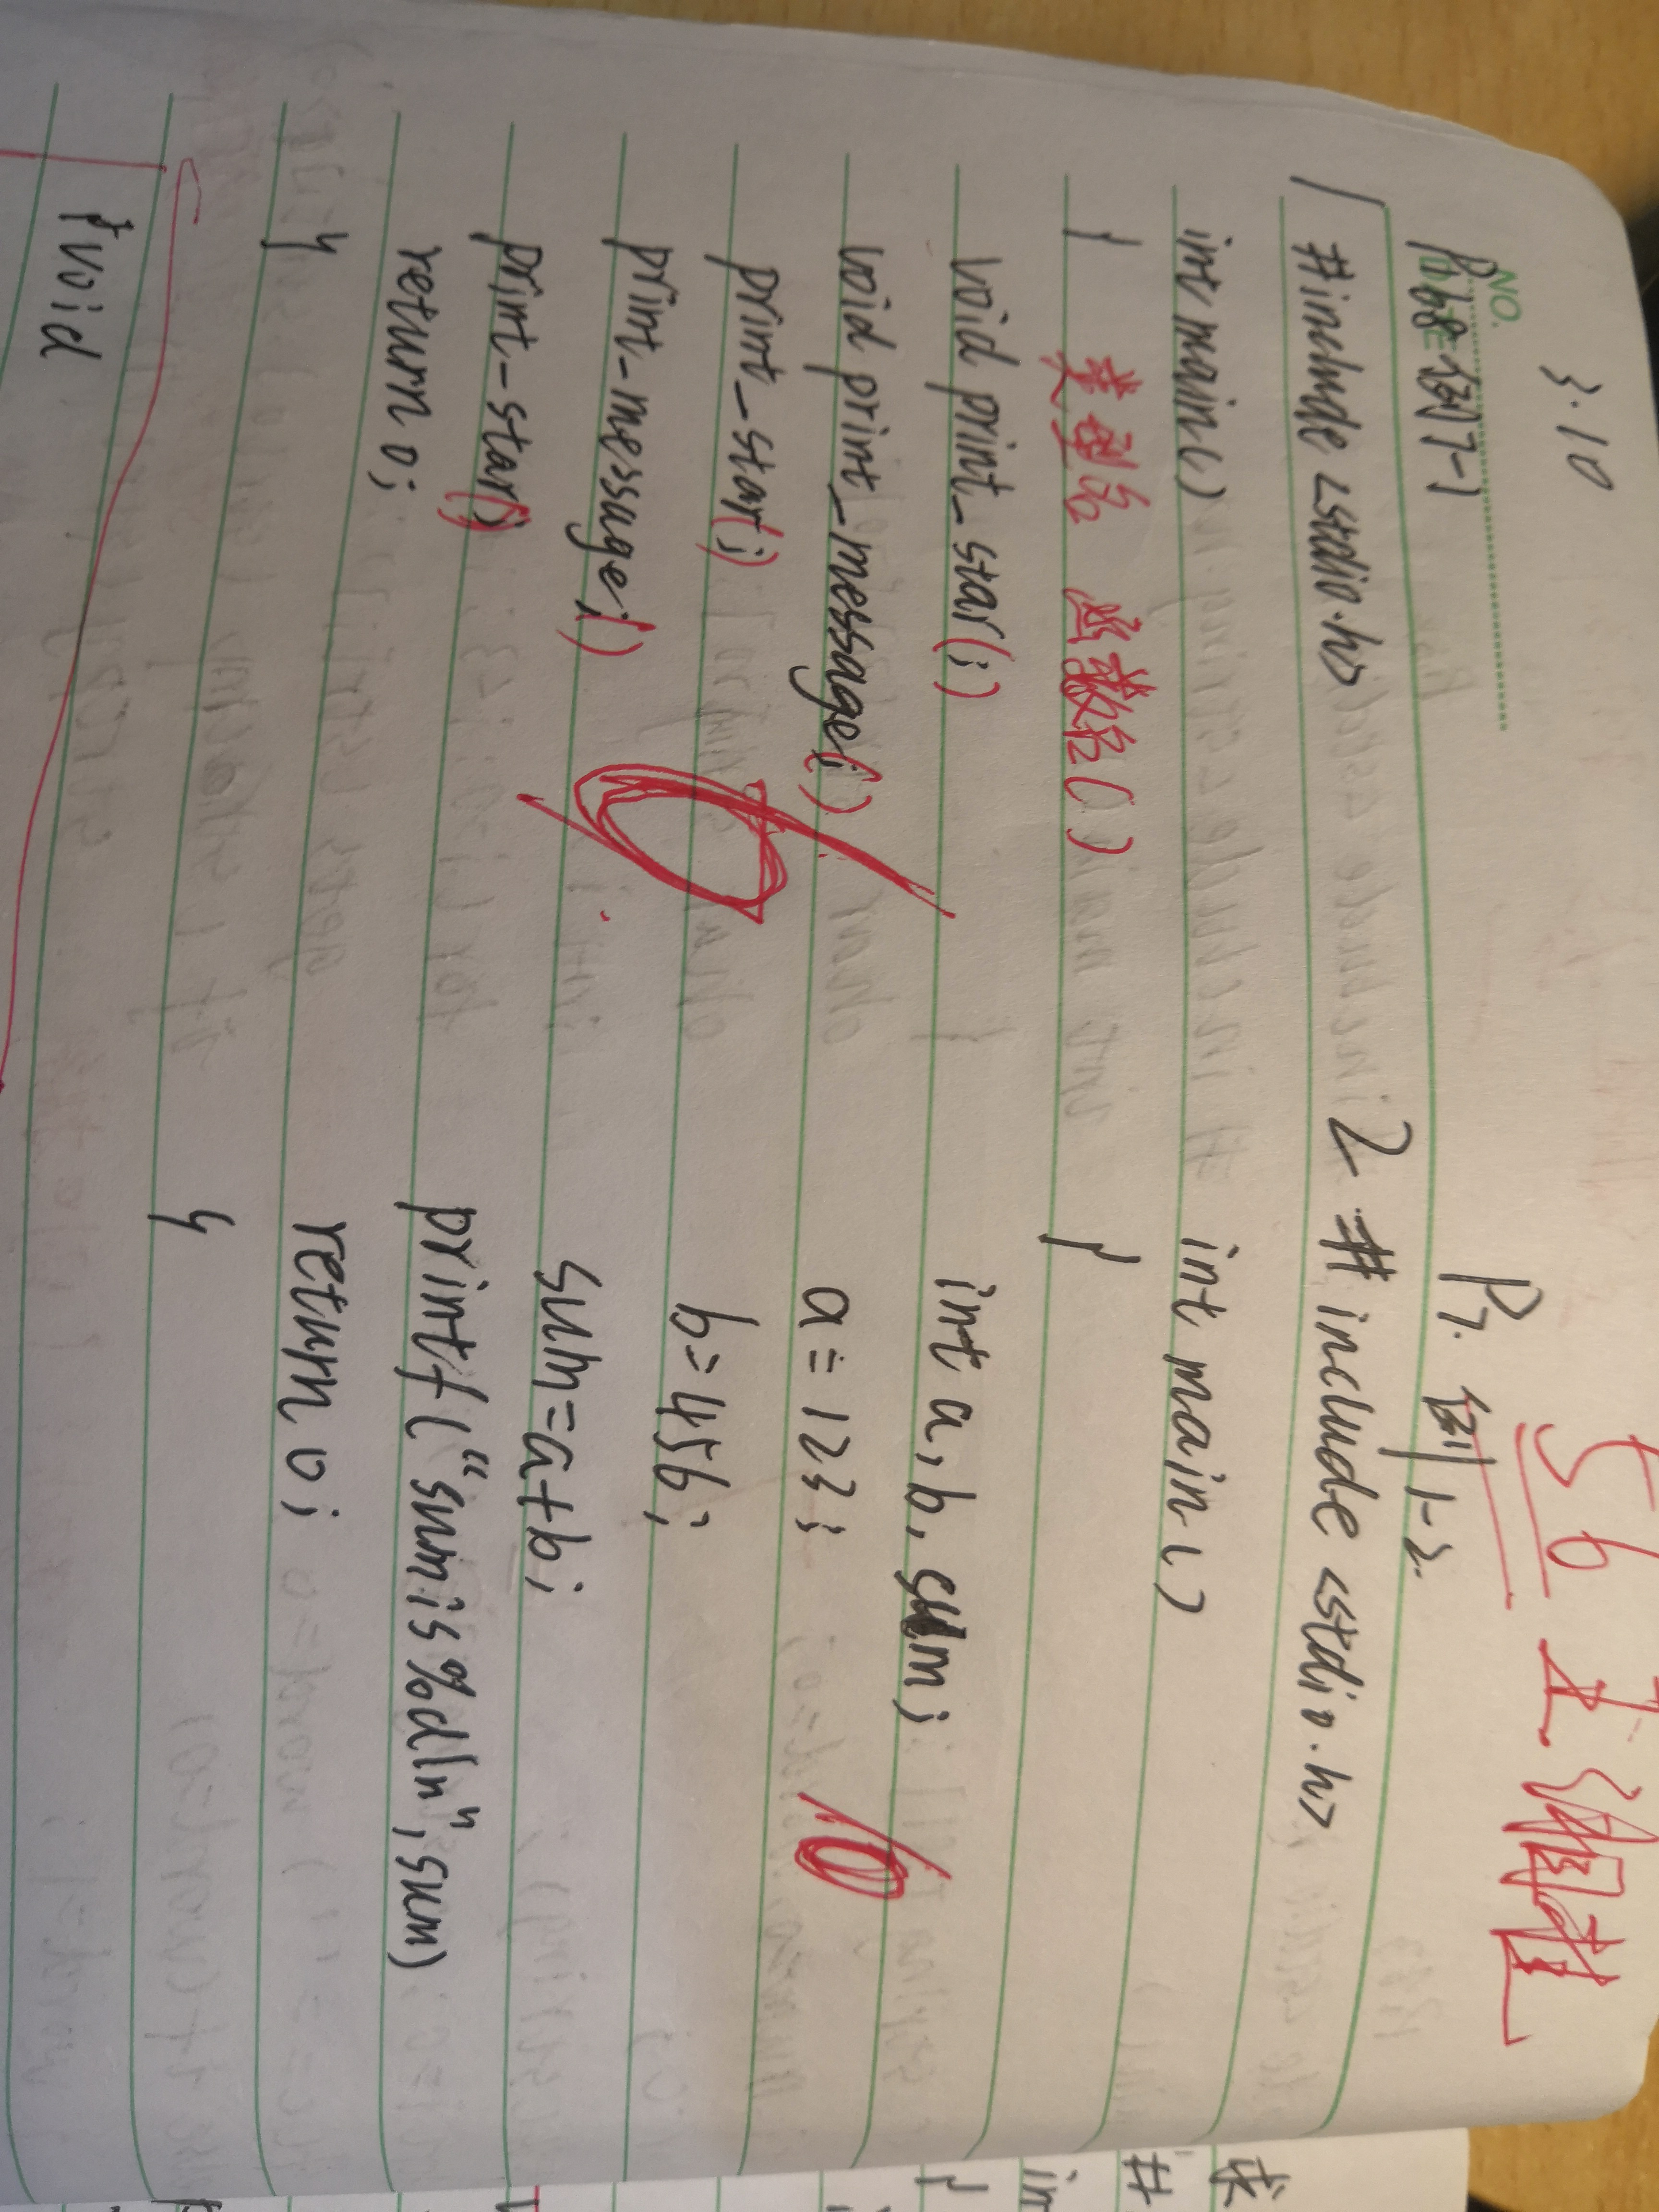 3.10
NO.
P168例7-1
1 #include <stdio.h>
int main()
{
类型名 函数名()
void print_star(;)
void print_message(;)
print_star(;)
print_message(;)
print_star(;)
return 0;
}
{void
56 王
P7. 例1-2.
2 #include <stdio.h>
int main()
{
int a, b, sum;
a=123;
b=456;
sum=a+b;
printf("sum is %d\n",sum)
return 0;
}
10
求
#
in
{